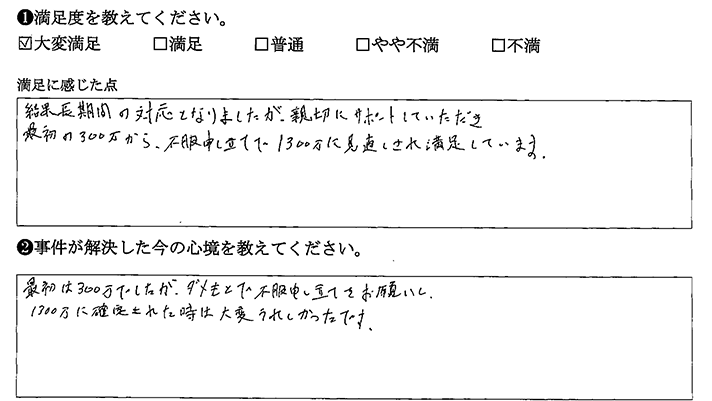 ❶満足度を教えてください。
☑大変満足 □満足 □普通 □やや不満 □不満
満足に感じた点
結果長期間の対応となりましたが、親切にサポートしていただき
最初の300万から、不服申し立てで1300万に見直しされ満足しています。
❷事件が解決した今の心境を教えてください。
最初は300万でしたが、ダメもとで不服申し立てをお願いし、
1300万に確定された時は大変うれしかったです。